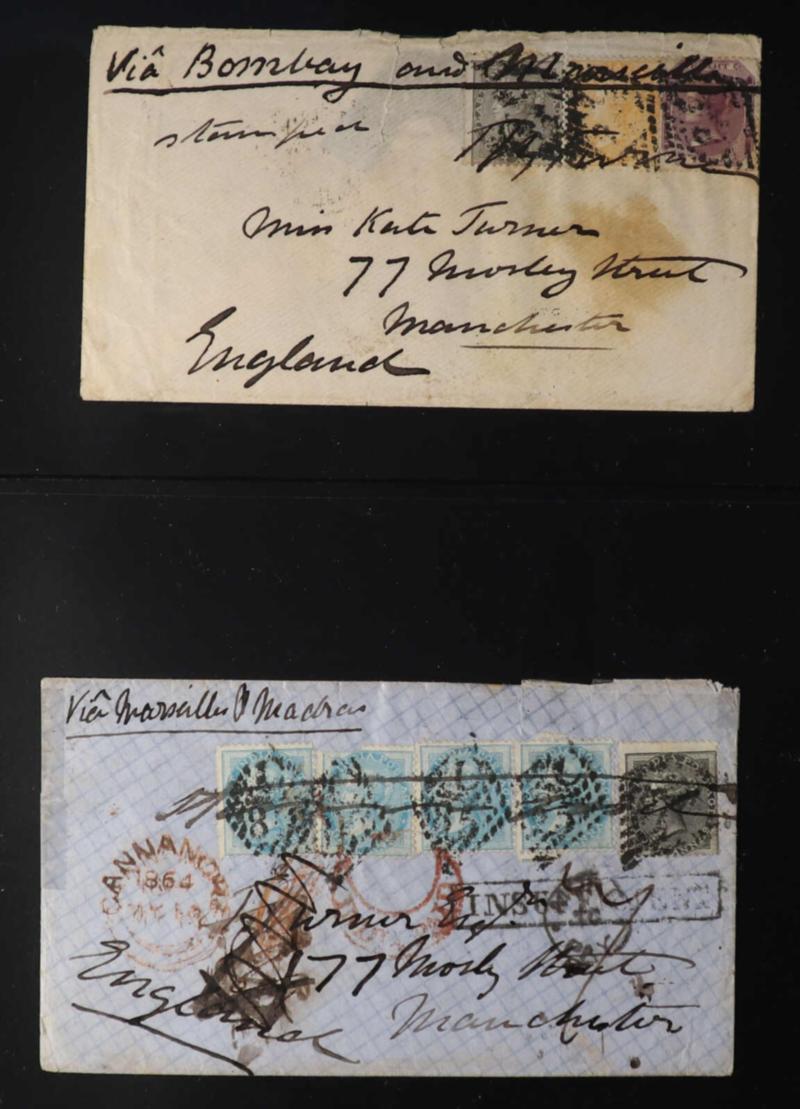 Viâ Bombay and Marseilles
stamped
Miss Kate Turner
77 Mosley Street
Manchester
England
Viâ Marseilles & Madras
CANNANORE
1864
INSUFFICIENT
Turner Esqr
77 Mosley Street
Manchester
England